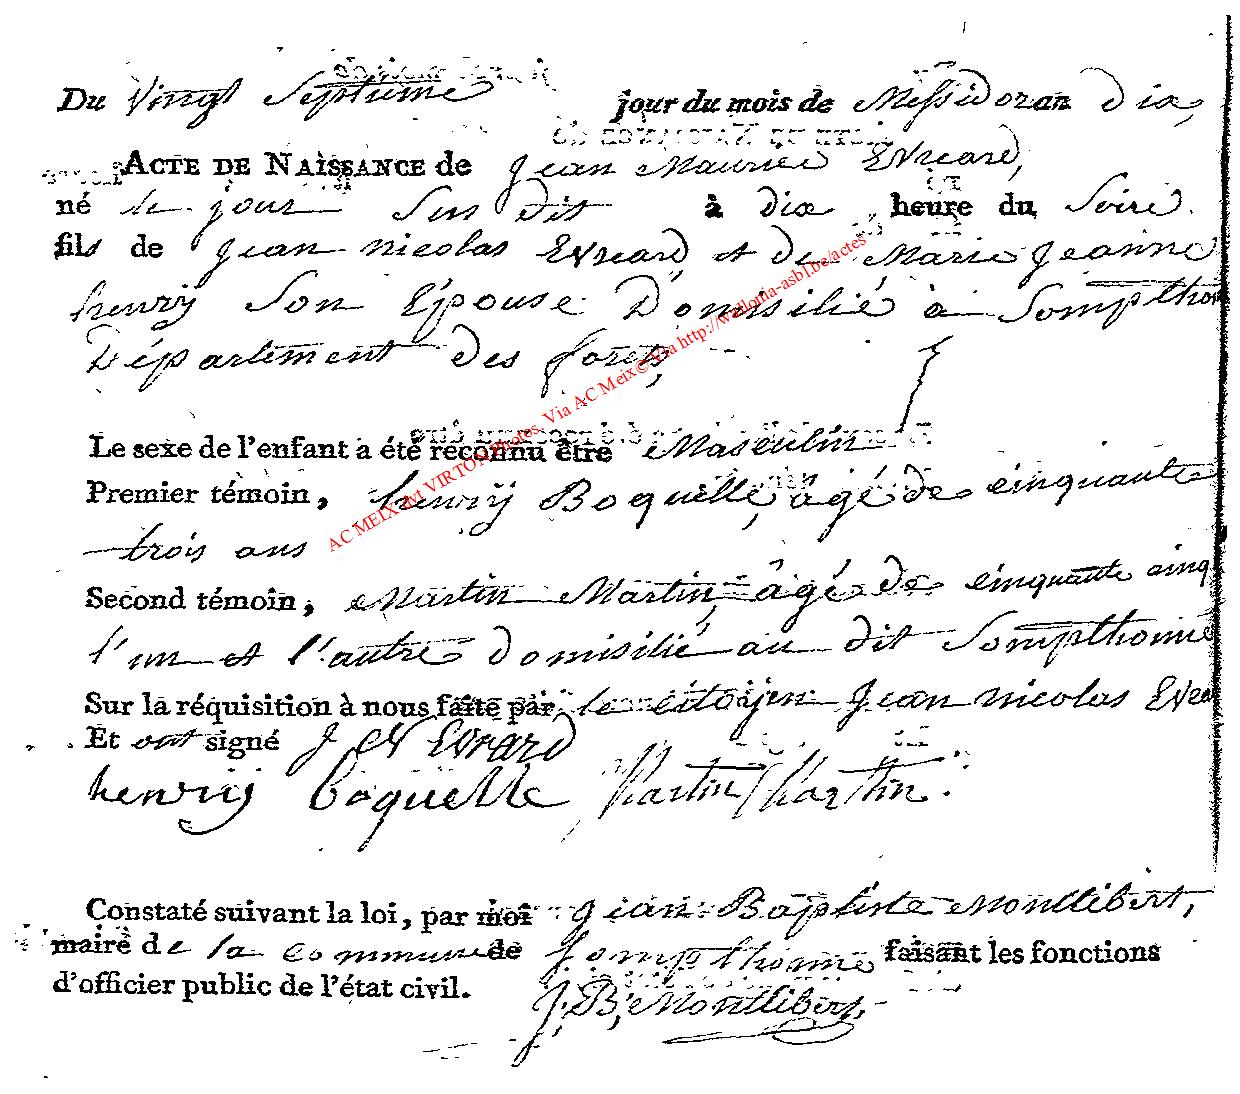 Du Vingt Septieme jour du mois de Messidor an dix,
ACTE DE NAISSANCE de Jean Maurice Evrard,
né le jour Sus dit à dix heure du Soire
fils de Jean nicolas Evrard, et de Marie Jeanne
henry Son Épouse Domisilié à Sompthon
Département des forets,
Le sexe de l'enfant a été reconnu être Masculin
Premier témoin, henrÿ Boquelle, âgé de cinquante
trois ans
Second témoin, Martin Martin, âgé de cinquante cinq
l'un et l'autre domisilié au dit Sompthonne
Sur la réquisition à nous faite par le citoÿen Jean nicolas Evra
Et ont signé J N Evrard
henrÿ boquelle Martin Martin.
Constaté suivant la loi, par moi Jean Baptiste Montlibert,
maire de la commune de Sompthonne faisant les fonctions
d'officier public de l'état civil. J. B. Montlibert,
AC MEIX dvt VIRTON Photos. Via AC Meix© Via http://wallonia-asbl.be/actes